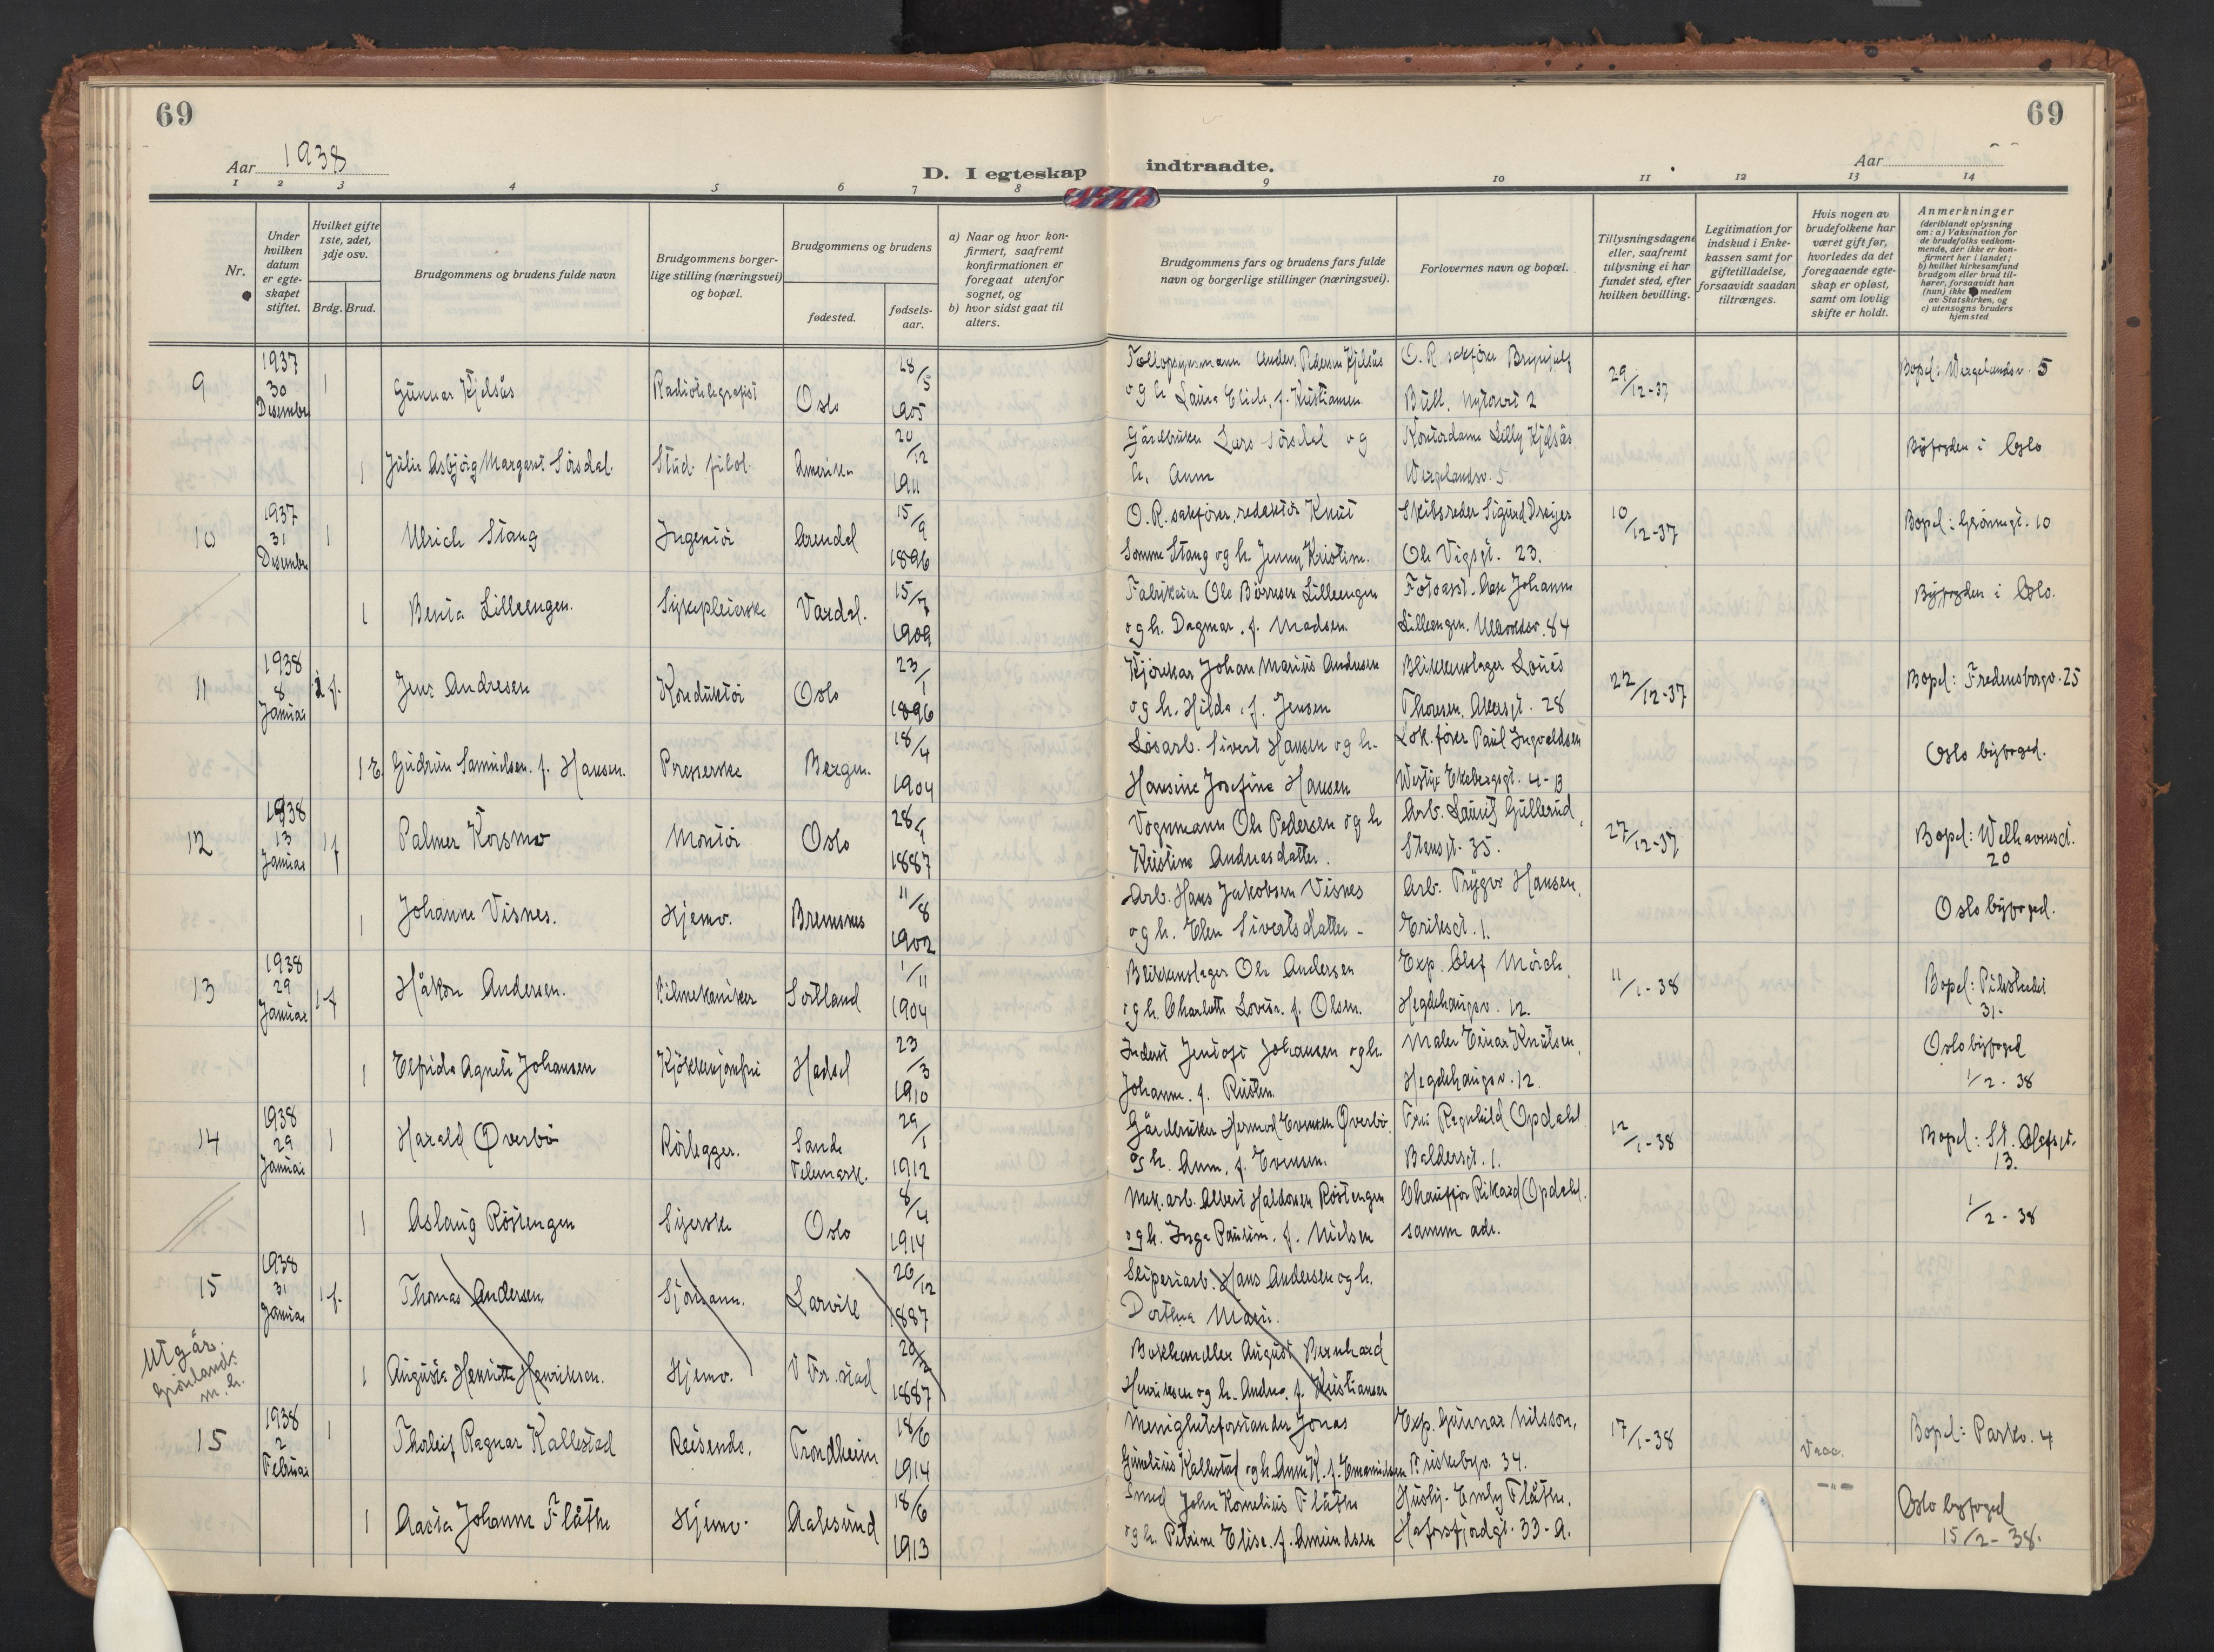 69
69
Aar 1938
D. I egteskap indtraadte.
Aar
1 2 3 4 5 6 7 8 9 10 11 12 13 14
Nr.
Under hvilken datum er egte-skapet stiftet.
Hvilket gifte 1ste, 2det, 3dje osv.
Brdg. Brud.
Brudgommens og brudens fulde navn
Brudgommens borger-lige stilling (næringsvei) og bopæl.
Brudgommens og brudens
fødested.
fødsels-aar.
a) Naar og hvor kon-firmert, saafremt konfirmationen er foregaat utenfor sognet, og
b) hvor sidst gaat til alters.
Brudgommens fars og brudens fars fulde navn og borgerlige stillinger (næringsvei).
Forlovernes navn og bopæl.
Tillysningsdagene eller, saafremt tillysning ei har fundet sted, efter hvilken bevilling.
Legitimation for indskud i Enke-kassen samt for giftetilladelse, forsaavidt saadan tiltrænges.
Hvis nogen av brudefolkene har været gift før, hvorledes da det foregaaende egte-skap er opløst, samt om lovlig skifte er holdt.
Anmerkninger
(deriblandt oplysning om: a) Vaksination for de brudefolks vedkom-mende, der ikke er kon-firmert her i landet; b) hvilket kirkesamfund brudgom eller brud til-hører, forsaavidt han (hun) ikke er medlem av Statskirken, og c) utensogns bruders hjemsted
9 1937 30 Desember 1 Gunnar Kjelsås Radiotelegrafist Oslo 28/5 1905
Anders Pedersen Kjelsås og h. Laura Elise, f. Kristiansen
O. R. sakfører Brynjulf Bull. Nytorvet 2
29/12-37
Bopel: Wergelandsv. 5
1 Julie Asbjörg Margaret Sörsdal. Stud. filol. Amerika 20/12 1911
Gårdbruker Lars Sörsdal og h. Anna
Kontordame Lilly Kjelsås Wergelandsv. 5
Byfogden i Oslo
10 1937 31 Desember 1 Ulrich Stang Ingeniör Arendal 15/9 1896
O. R. sakförer, redaktör Knut Somme Stang og h. Jenny Kristine.
Skibsreder Sigurd Dreyer Ole Vigsgt. 23.
10/12-37
Bopel: Grönnegt. 10
1 Benta Lilleengen. Sykepleierske Vardal. 15/7 1909
Fabrikeier Ole Börresen Lilleengen og h. Dagmar. f. Madsen.
Johanne Lilleengen. Ullevålsv. 84
Byfogden i Oslo.
11 1938 8 Januar 1 f. Jens Andresen Konduktör Oslo 23/1 1896
Kjörekar Johan Marius Andresen og h. Hilda. f. Jensen
Blikkenslager Louis Thoresen. Akersgt. 28
22/12-37
Bopel: Fredensborgv. 25
1 E. Gudrun Samuelsen. f. Hansen. Presserske Bergen. 18/4 1904
Lösarb. Sivert Hansen og h. Hansine Josefine Hansen
Lok. förer Paul Ingvaldsen Vestye Ekebergsgt. 4-B
Oslo byfoged.
12 1938 13 Januar 1 f Palmer Korsmo Montör Oslo 28/1 1887
Vognmann Ole Pedersen og h Kristine Andreasdatter.
Arb. Laurits Gullerud, Stensgt. 35.
27/12-37
Bopel: Welhavensgt. 20
1 Johanne Visnes. Hjemv. Bremsnes 11/8 1902
Arb. Hans Jakobsen Visnes og h. Elen Sivertsdatter -
Arb. Trygve Hansen, Eriksgt. 1.
Oslo byfoged.
13 1938 29 Januar 1 f Håkon Andersen. Filmekaniker Sortland 1/11 1904
Blikkenslager Ole Andersen og h. Charlotte Lovise. f. Olsen.
Exp. Olaf Mörch, Hegdehaugsv. 12.
11/1-38
Bopel: Pilestredet 31.
1 Elfrida Agnete Johansen Kjökkenjomfru Hadsel 23/3 1910
Inderst Jentoft Johansen og h. Johanne. f. Rusten.
Maler Einar Knutsen, Hegdehaugsv. 12.
Oslo byfoged 1/2-38
14 1938 29 Januar 1 Harald Øverbö Rörlegger. Sande Telemark. 29/1 1912
Gårdbruker Hermod Evensen Øverbö, og h. Anne, f. Evensen.
Fru Ragnhild Opdahl Baldersgt. 1.
12/1-38
Bopel: St. Olafsgt. 13.
1 Aslaug Röstengen Syerske Oslo 8/4 1914
Mek. arb. Albert Haldorsen Röstengen og h. Inga Pauline. f. Nielsen
Chaufför Rikard Opdahl. samme adr.
1/2-38
15 1938 31 Januar 1 f. Thomas Andersen. Sjömann. Larvik 26/12 1887
Sliperiarb. Hans Andersen og h. Dorthea Marie.
Utgår. Grönlands m. h.
1 Augusta Henriette Henriksen. Hjemv. Fr. stad 1887
Bokhandler August Bernhard Henriksen og h. Andrea. f. Kristiansen
15 1938 2 Februar 1 Thorleif Ragnar Kallestad Reisende. Trondheim 18/6 1914
Menighetsforstander Jonas Gunelius Kallestad og h. Anna K. f. Emanuelsen
Exp. Gunnar Nilsson, Briskebyv. 34.
17/1-38
Vacc.
Bopel: Parkv. 4
1 Aasta Johanne Flåthe Hjemv. Aalesund 18/6 1913
Smed John Kornelius Flåthe og h. Petrine Elise. f. Amundsen
Husby. Emby Flåthe. Hafrsfjordgt. 33-A.
-"-
Oslo byfoged 15/2-38.